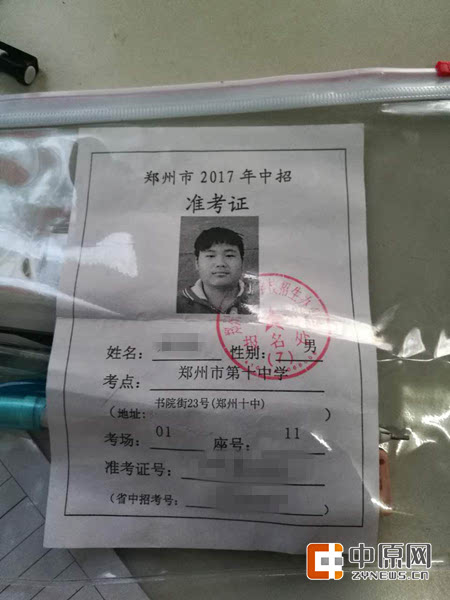 郑州市 2017 年中招
准考证
姓名： 性别： 男
考点： 郑州市第十中学
书院街23号(郑州十中)
（地址： ）
考场： 01 座号： 11
准考证号：
（省中招考号： ）
报名处
(7)
中原网
ZYNEWS.CN